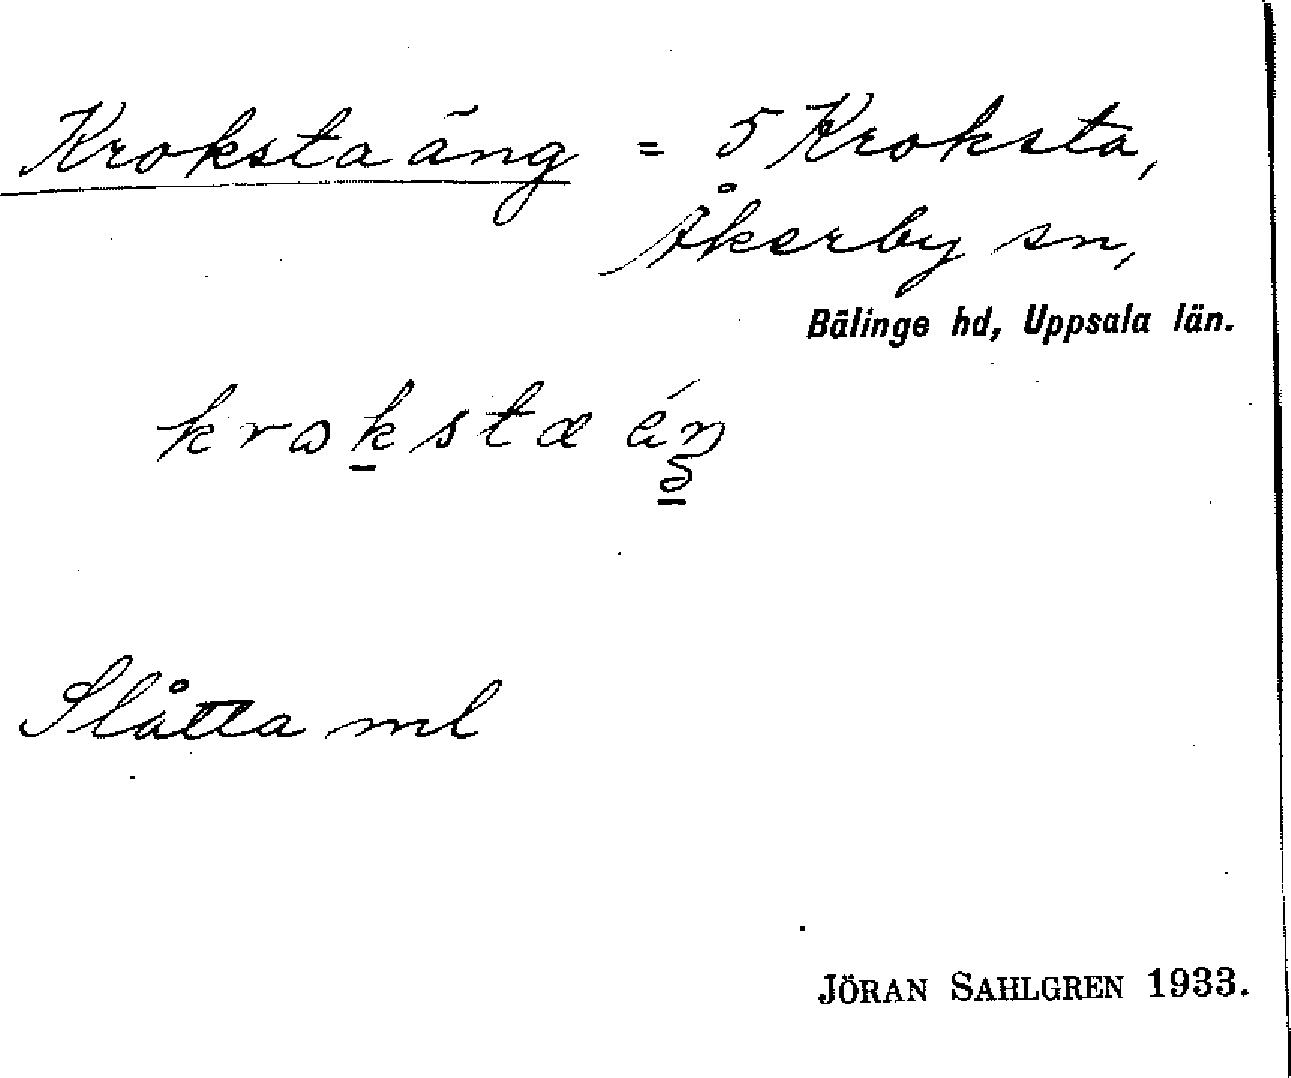 Krokstaäng = 5 Kroksta,
Åkerby sn,
Bälinge hd, Uppsala län.
Slåtta ml
JÖRAN SAHLGREN 1933.